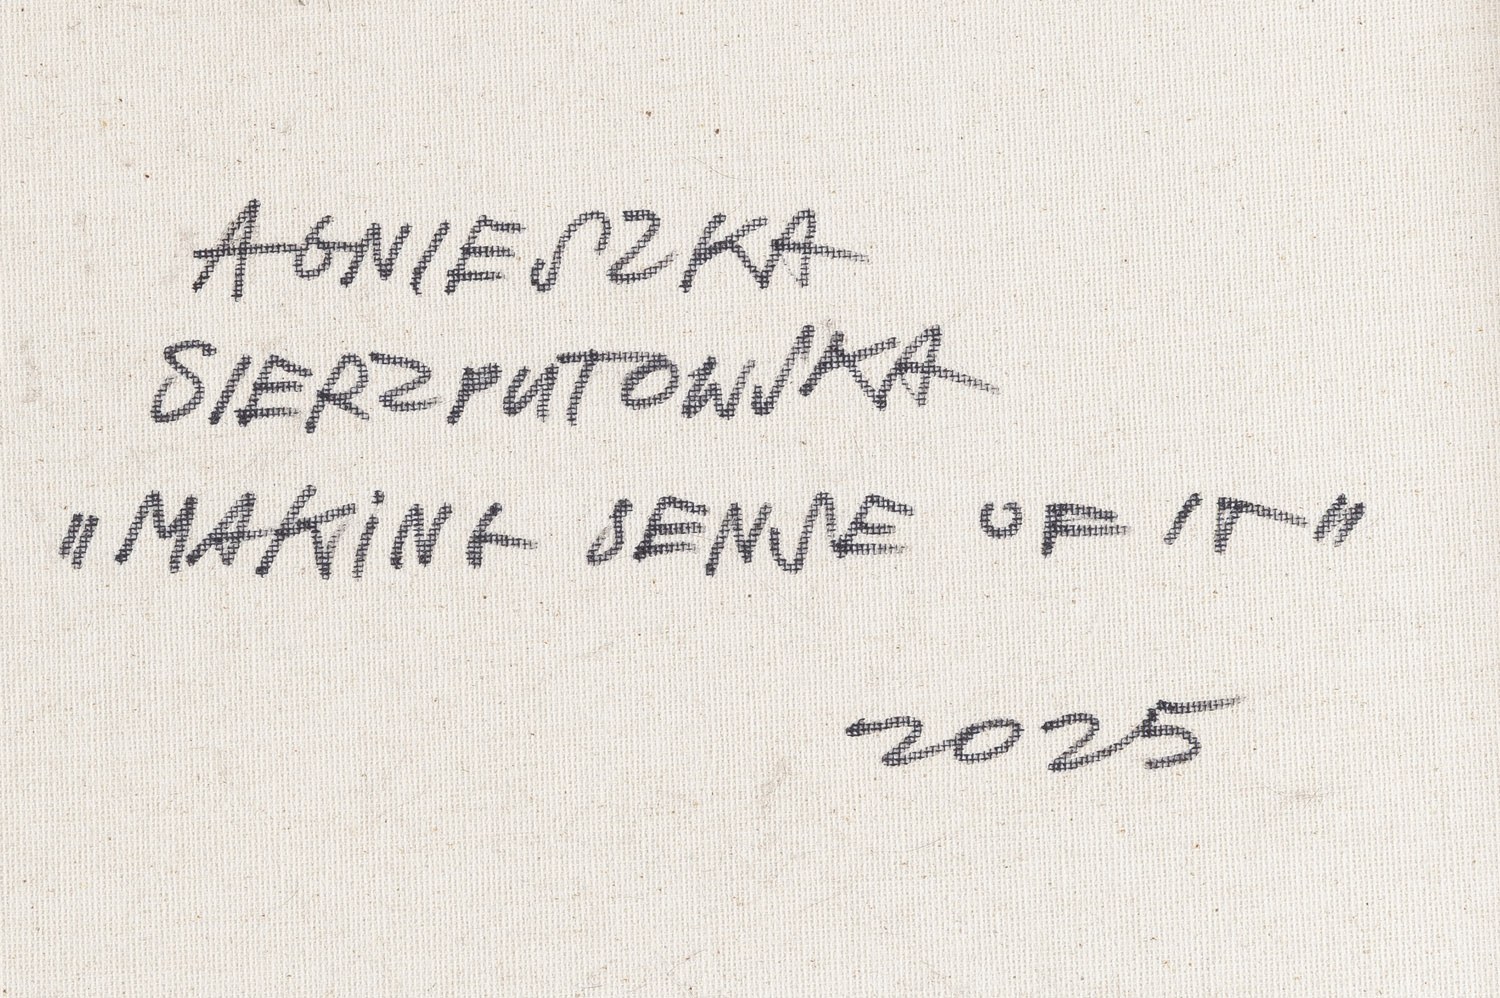 AGNIESZKA
SIERZPUTOWSKA
"MAKING SENSE OF IT"
2025